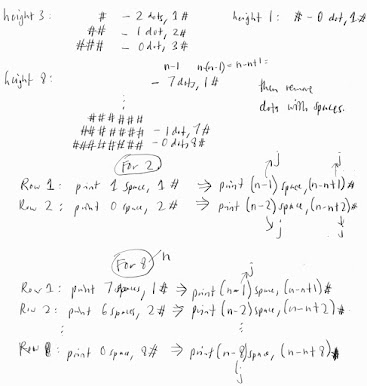 height 3: # - 2 dots, 1#
## - 1 dot, 2#
### - 0 dot, 3#
height 1: # - 0 dot, 1#
n-1 n-(n-1) = n-n+1 =
height 8: - 7 dots, 1#
then remove
dots with spaces.
:
######
####### - 1 dot, 7#
######## - 0 dot, 8#
For 2
j j
Row 1: print 1 space, 1 # ⇒ print (n-1) space, (n-n+1) #
Row 2: print 0 space, 2 # ⇒ print (n-2) space, (n-n+2) #
j j
For 8 n
j
Row 1: print 7 spaces, 1 # ⇒ print (n-1) space, (n-n+1) #
Row 2: print 6 spaces, 2 # ⇒ print (n-2) space, (n-n+2) #
: :
Row 8: print 0 space, 8# ⇒ print (n-8) space, (n-n+8) #
j